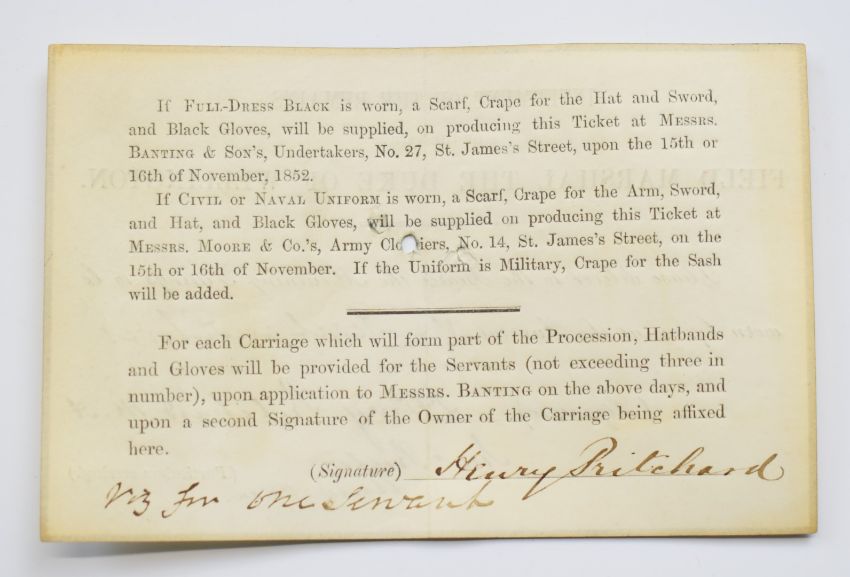 If Full-Dress Black is worn, a Scarf, Crape for the Hat and Sword,
and Black Gloves, will be supplied, on producing this Ticket at Messrs.
Banting & Son's, Undertakers, No. 27, St. James's Street, upon the 15th or
16th of November, 1852.
If Civil or Naval Uniform is worn, a Scarf, Crape for the Arm, Sword,
and Hat, and Black Gloves, will be supplied on producing this Ticket at
Messrs. Moore & Co.'s, Army Clothiers, No. 14, St. James's Street, on the
15th or 16th of November. If the Uniform is Military, Crape for the Sash
will be added.
For each Carriage which will form part of the Procession, Hatbands
and Gloves will be provided for the Servants (not exceeding three in
number), upon application to Messrs. Banting on the above days, and
upon a second Signature of the Owner of the Carriage being affixed
here.
(Signature) Henry Pritchard
viz for one Servant